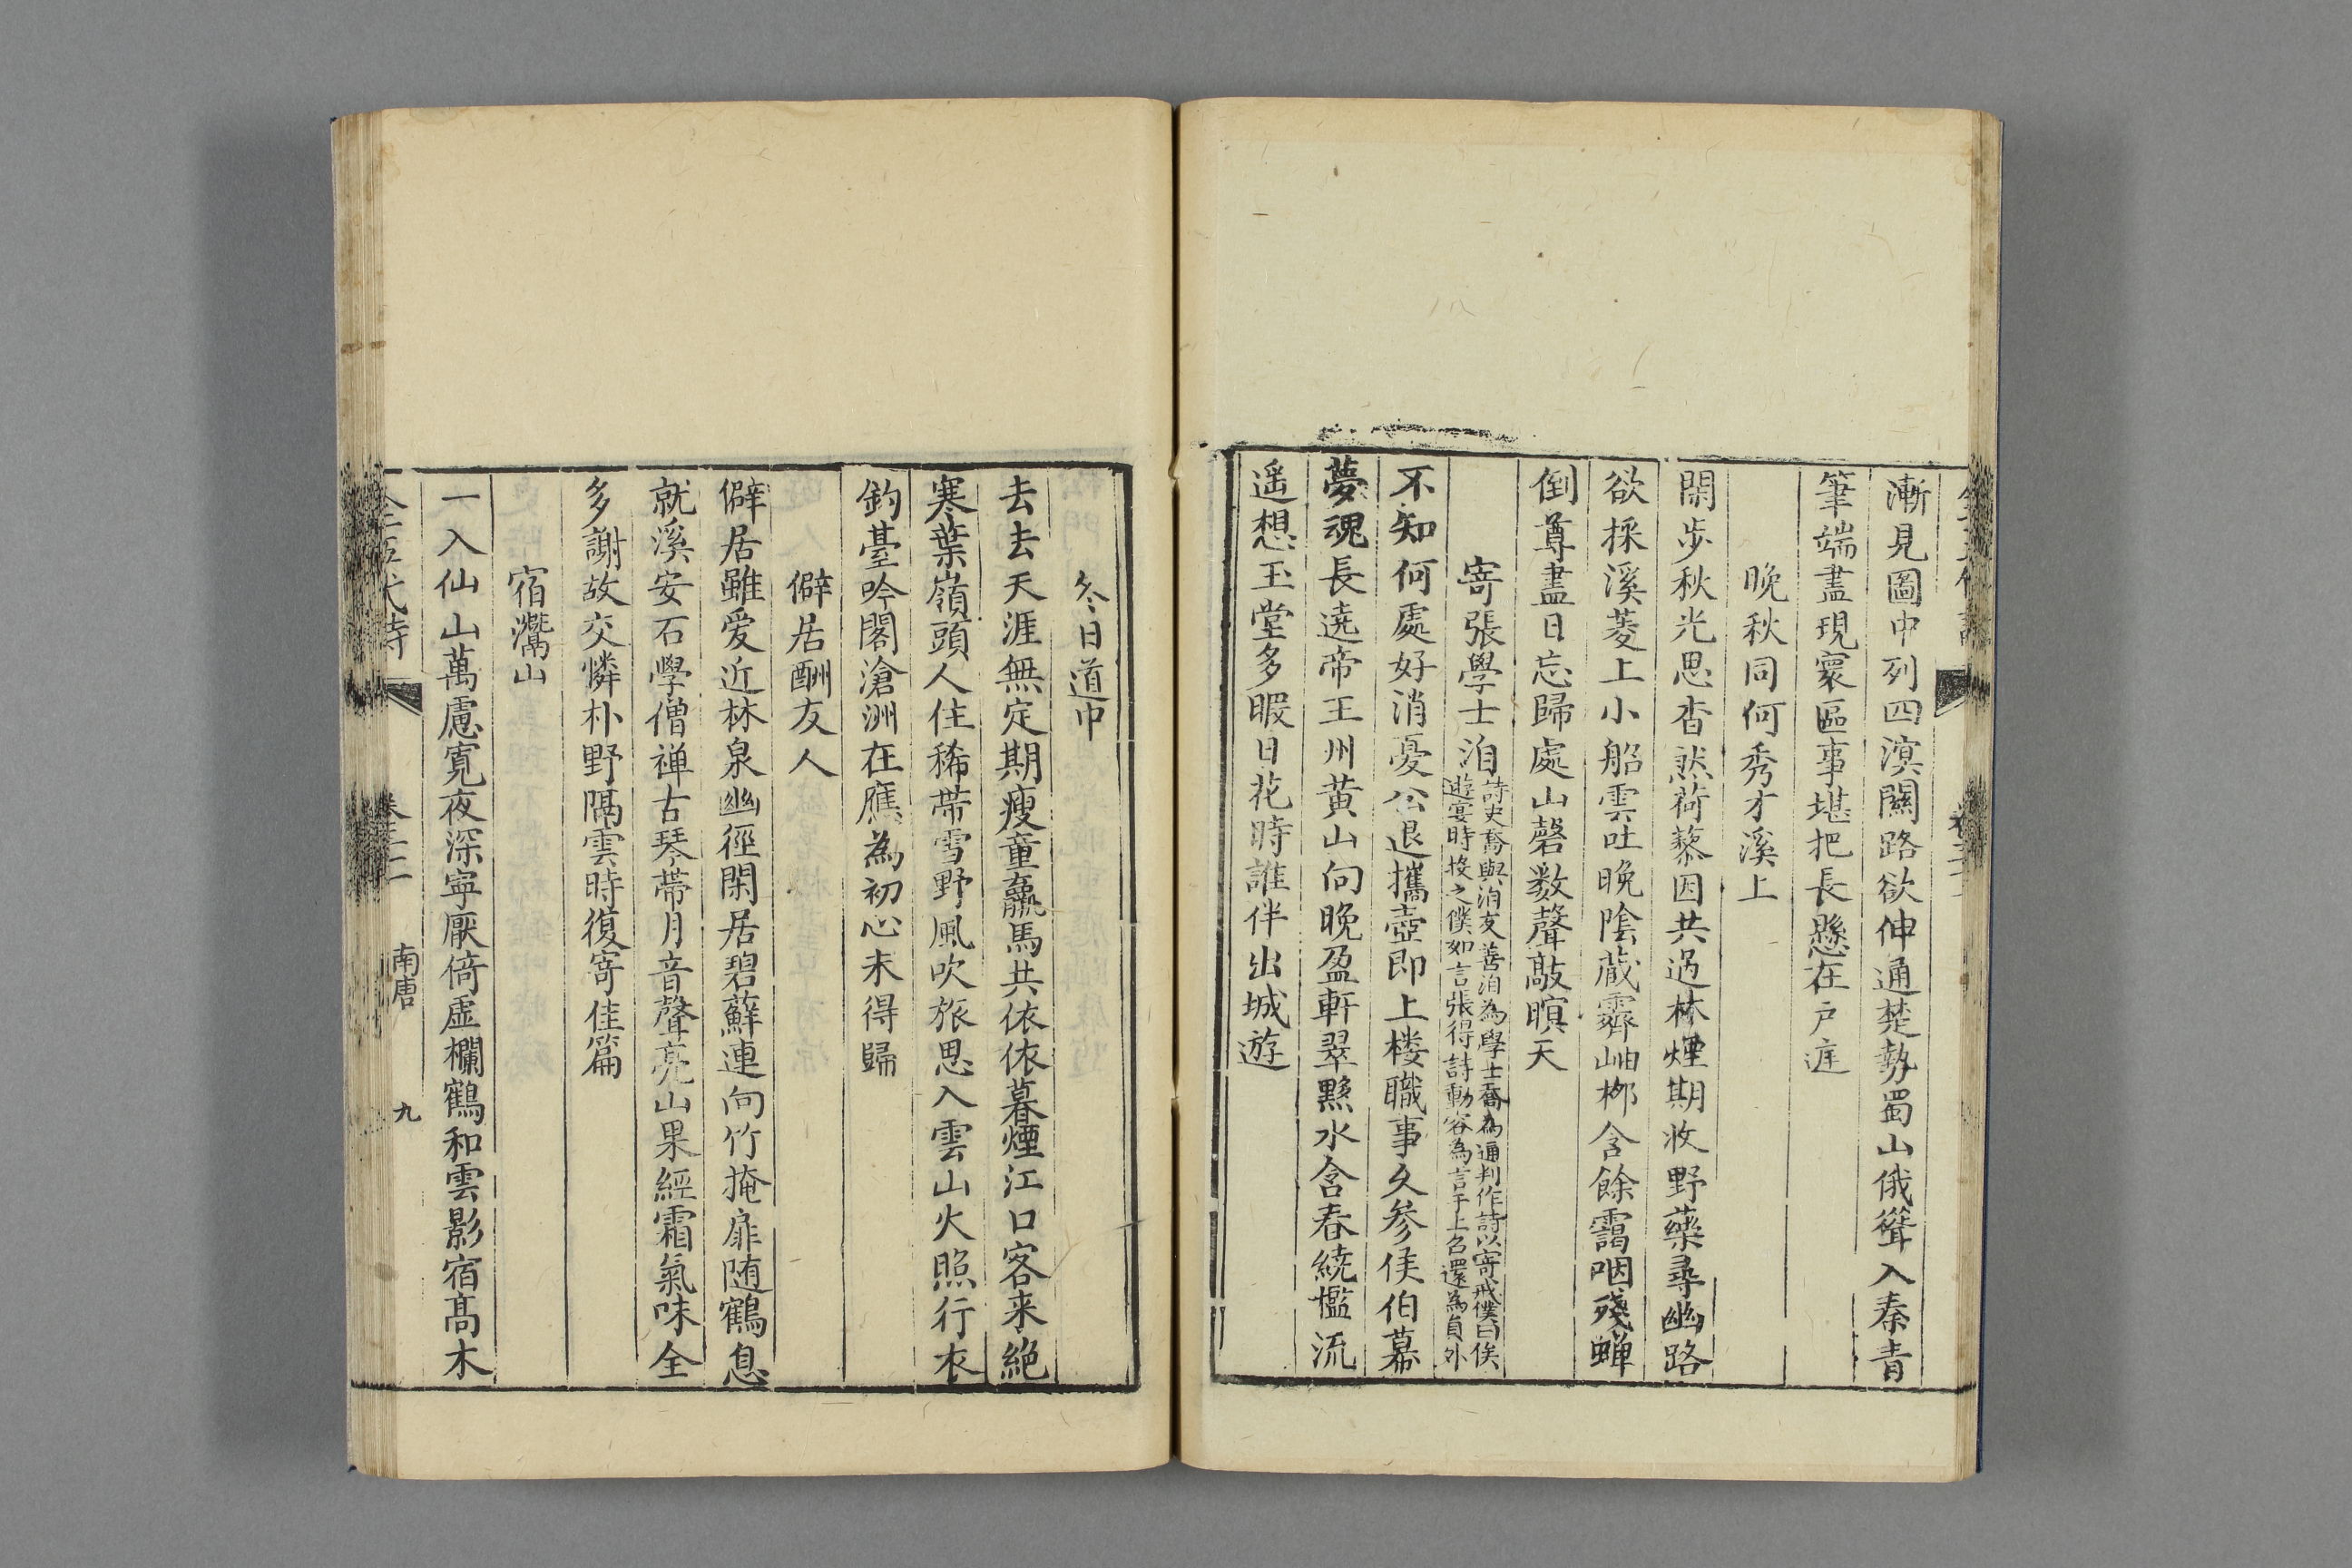 漸見圖中列四溟關路欲伸通楚勢蜀山俄聳入秦青
筆端盡現寰區事堪把長懸在戶庭
晚秋同何秀才溪上
閑步秋光思杳然荷藜因共過林煙期收野藥尋幽路
欲採溪菱上小船雲吐晚陰藏霽岫栁含餘靄咽殘蟬
倒尊盡日忘歸處山磬数聲敲暝天
寄張學士洎
詩史喬與洎友善洎為學士喬為通判作詩以寄戒僕曰俟
遊宴時投之僕如言張得詩動容為言于上召還為員外
不知何處好消憂公退攜壺即上楼職事久参侯伯幕
夢魂長遶帝王州黃山向晚盈軒翠黟水含春繞檻流
遥想玉堂多暇日花時誰伴出城遊
冬日道中
去去天涯無定期瘦童羸馬共依依暮煙江口客来絶
寒葉嶺頭人住稀帯雪野風吹旅思入雲山火照行衣
釣臺吟閣滄洲在應為初心未得歸
僻居酬友人
僻居雖爱近林泉幽徑閑居碧蘚連向竹掩扉随鶴息
就溪安石學僧禅古琴帯月音聲亮山果經霜氣味全
多謝故交憐朴野隔雲時復寄佳篇
宿灊山
一入仙山萬慮寛夜深寧厭倚虛欄鶴和雲影宿髙木
全五代詩 卷三二 南唐 九